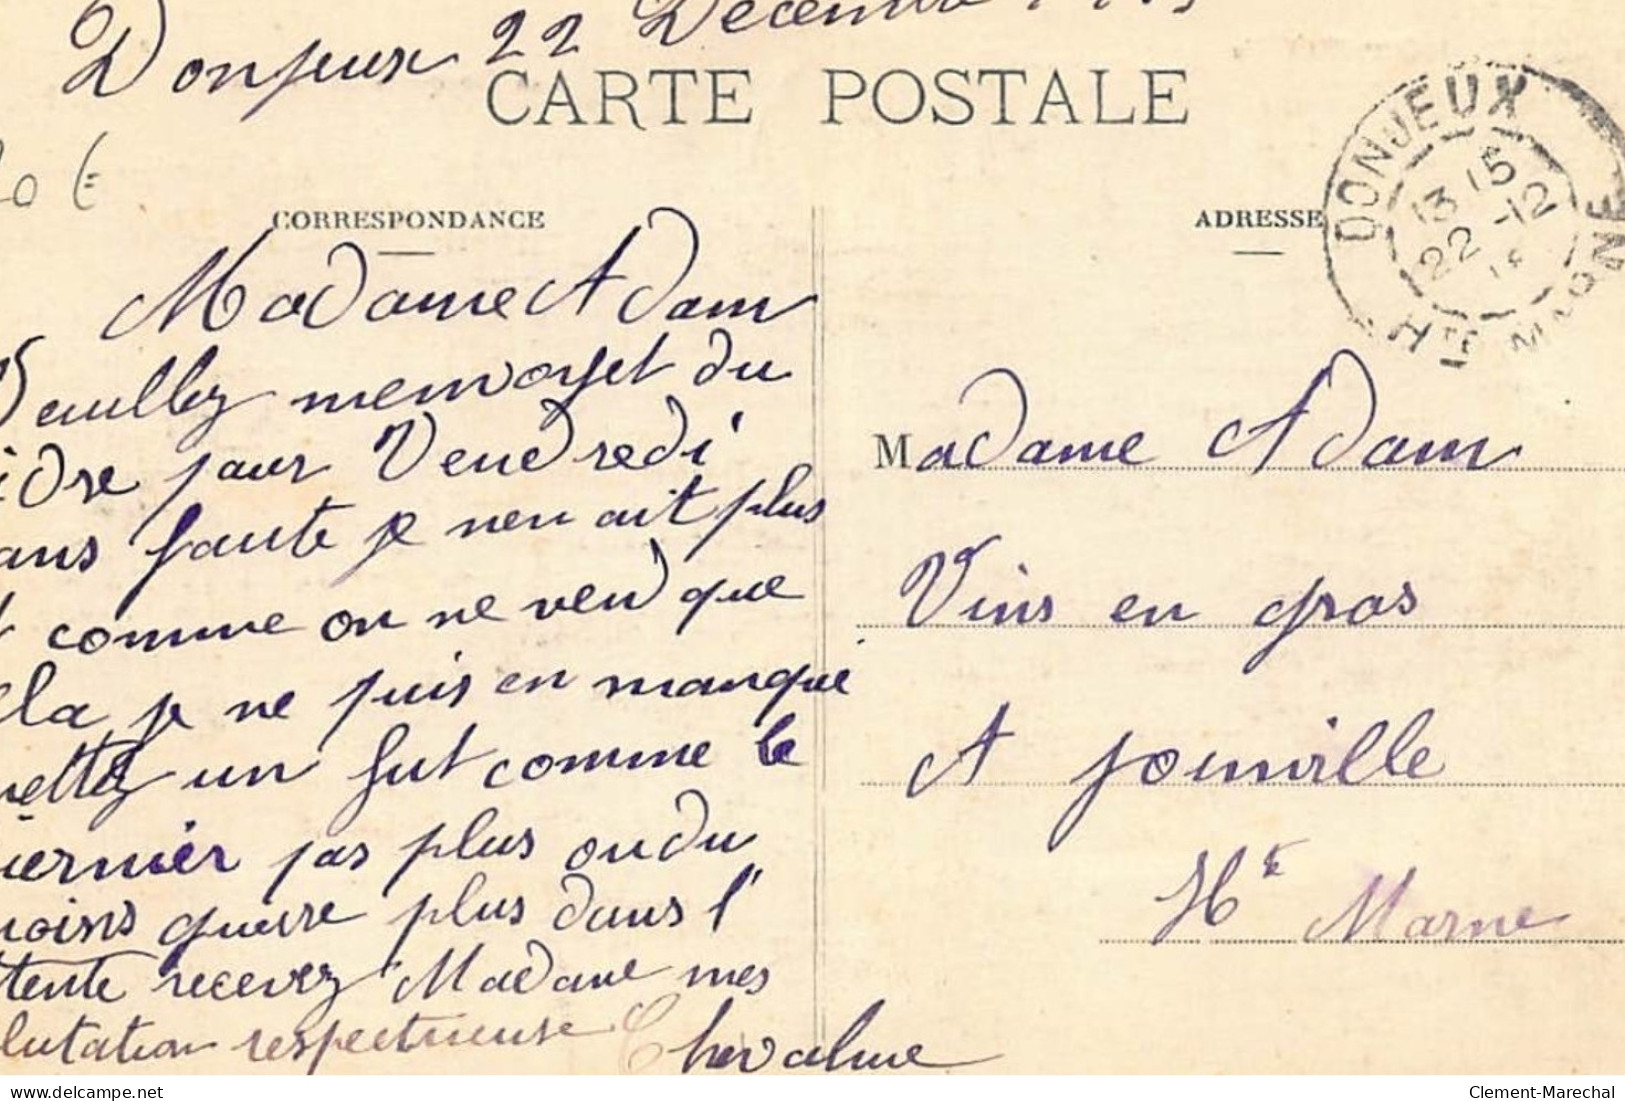 Donjeux 22 Décembre
CARTE POSTALE
CORRESPONDANCE
ADRESSE
DONJEUX
13 15
22 -12
Hte MARNE
Madame Adam
Veuillez menvoyet du
idre pour Vendredi
ans faute je nen ait plus
comme on ne vend que
ela je ne puis en manqué
mettez un fut comme le
dernier pas plus ou du
moins guerre plus dans l'
ttente recevez Madame mes
lutation respectueuse
Madame Adam
Vins en gros
A Joinville
Hte Marne
Clement-Marechal